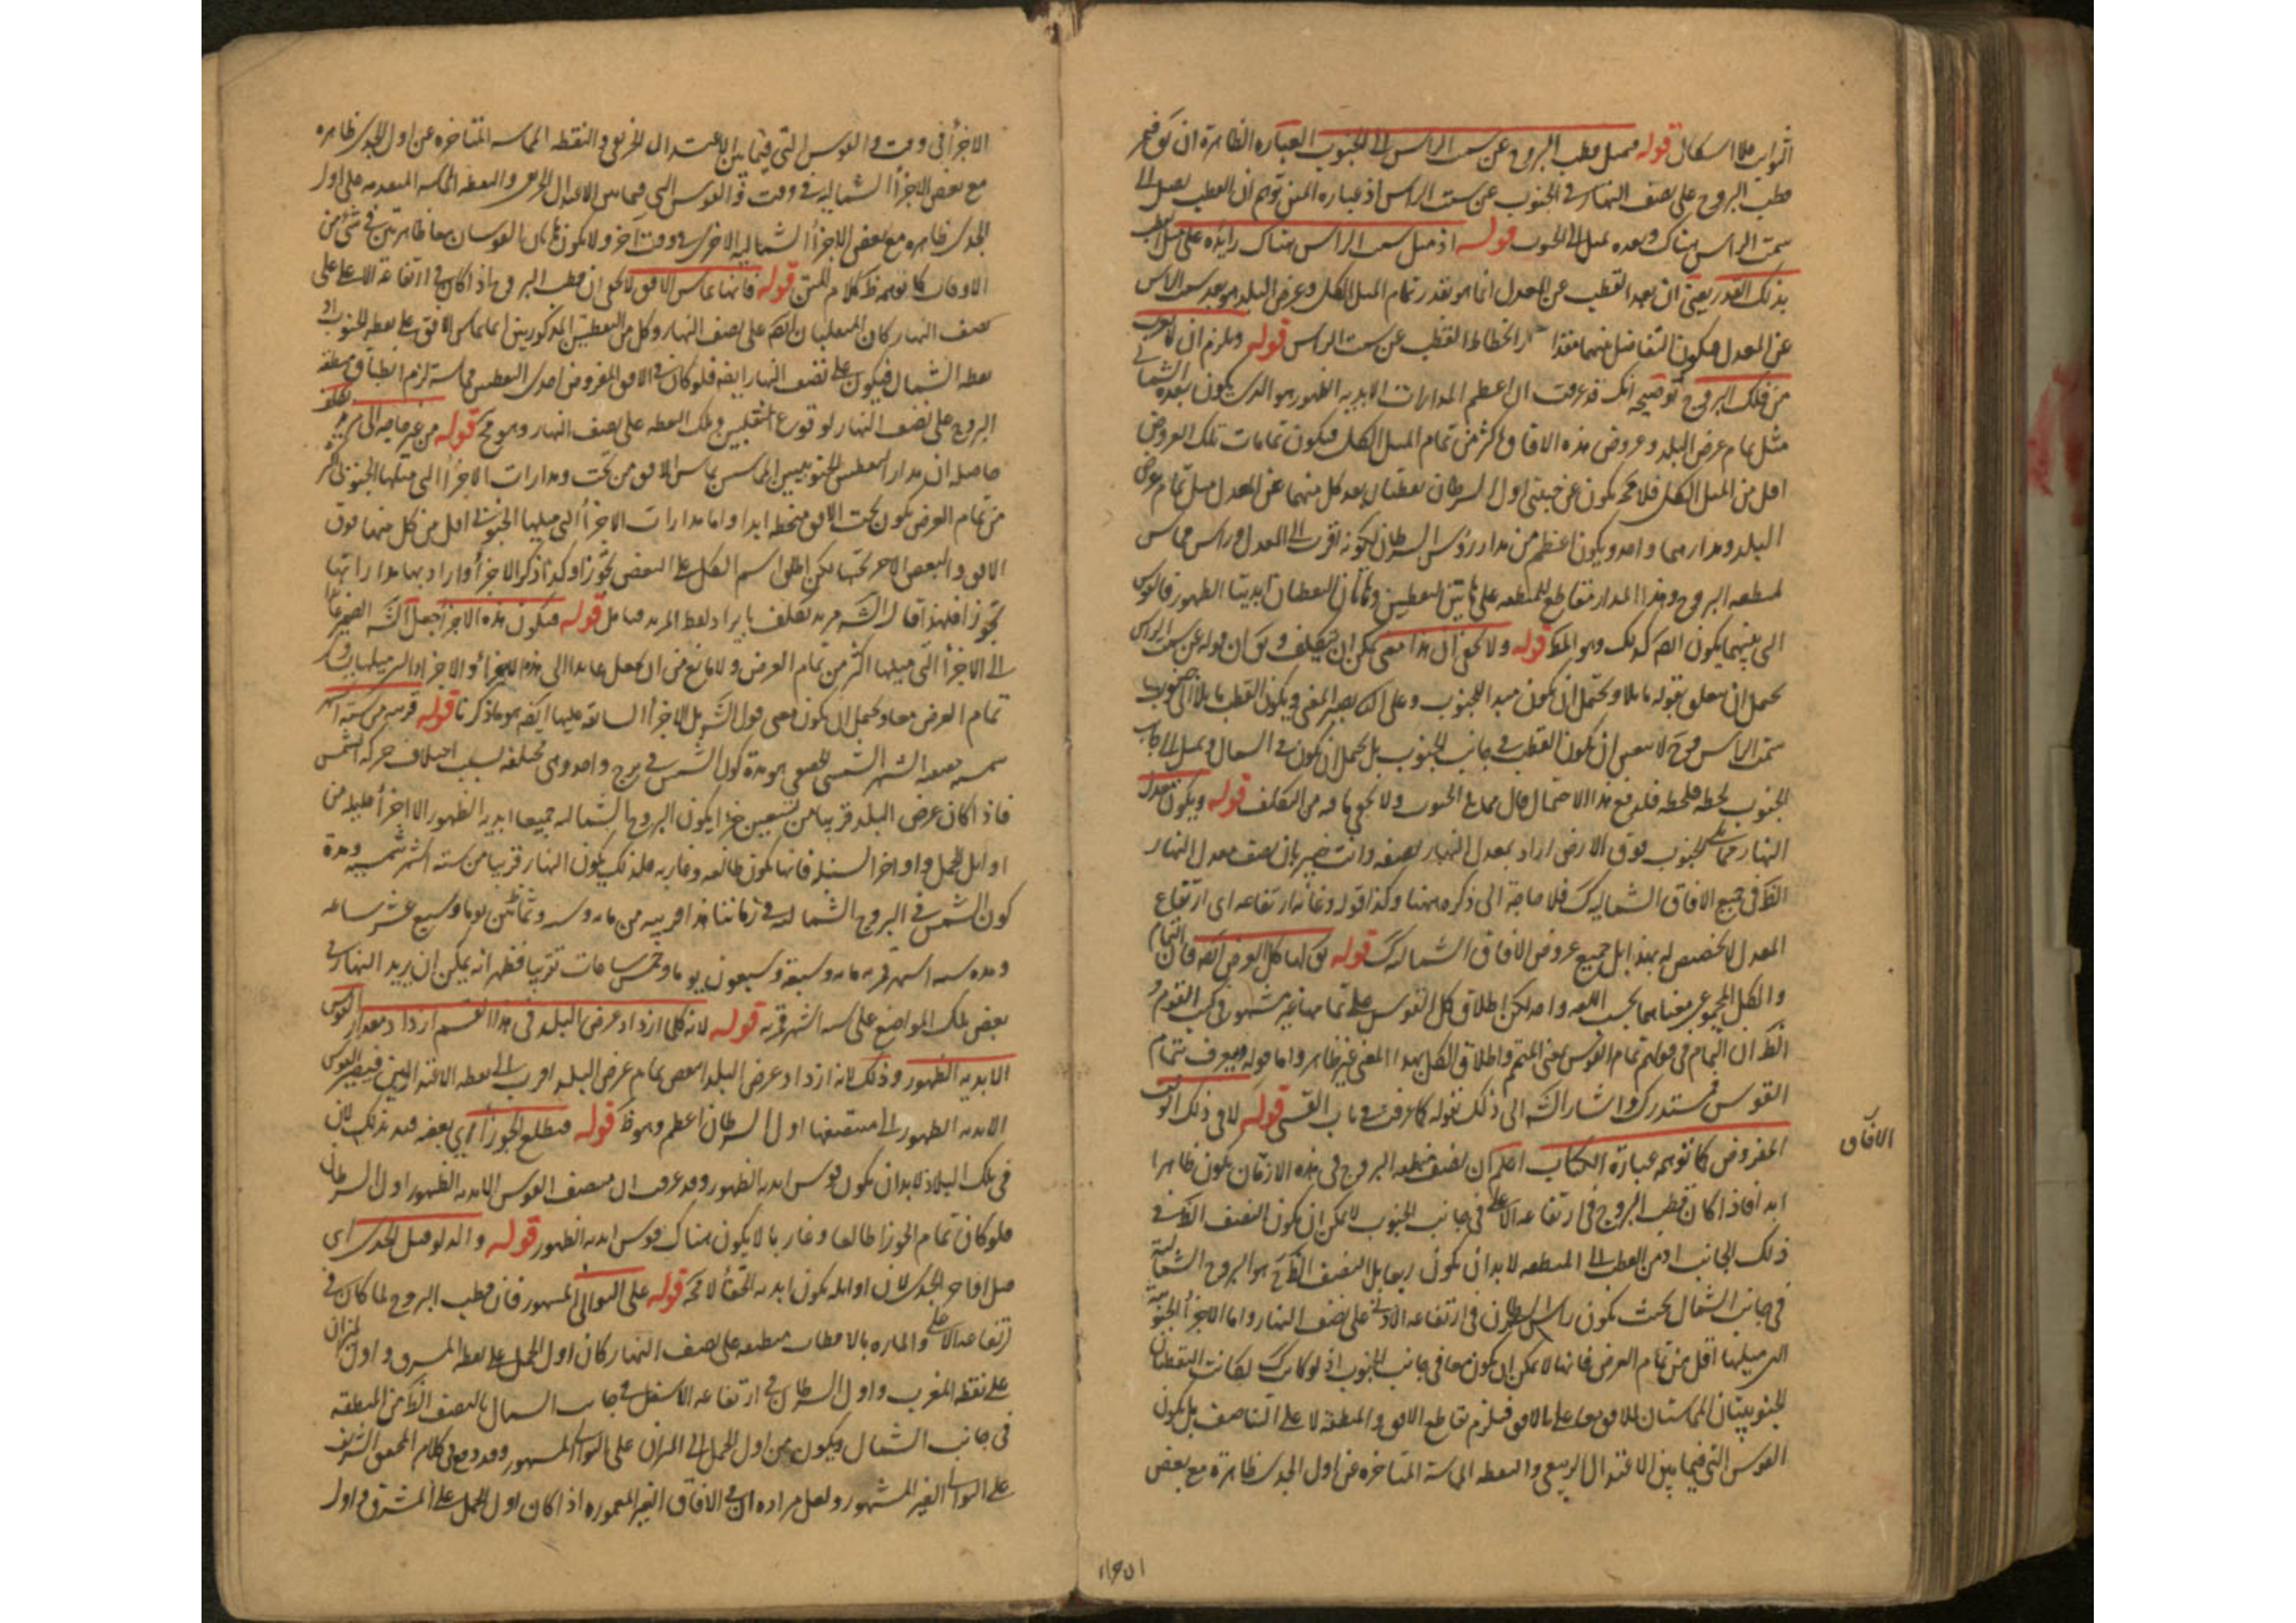 قوله فيميل قطب البروج عن سمت الراس الى الجنوب العبارة الظاهرة ان
قطب البروج على نصف النهار في الجنوب عن سمت الراس اذ عبارة المتن توهم ان القطب يصل الى
سمت الراس هناك وبعده يميل الى الجنوب قوله اذ ميل سمت الراس هناك زايد على ميل القطب
بذلك القدر يعني ان بعد القطب عن المعدل انما هو بقدر تمام الميل الكلي وعرض البلد هو بعد سمت الراس
عن المعدل فيكون التفاضل بينهما مقدار انحطاط القطب عن سمت الراس قوله ويلزم ان
من فلك البروج توضيحه انك قد عرفت ان اعظم المدارات الابدية الظهور هو الذي يكون بعده الشمالي
مثل تمام عرض البلد وعروض هذه الافاق اكثر من تمام الميل الكلي فيكون تمامات تلك العروض
اقل من الميل الكلي فلا محة يكون عن جنبتي اول السرطان نقطتان بعد كل منهما عن المعدل مثل تمام عرض
البلد ومدارهما واحد ويكون اعظم من مدار رؤس السرطان لكونه اقرب الى المعدل وراس مماس
لمنطقة البروج وهذا المدار متقاطع للمنطقة على هاتين النقطتين وهاتان النقطتان ابديتا الظهور فالقوس
التي بينهما يكون ايضا كذلك وهو المط قوله ولا يخفى ان هذا معنى يمكن ان يتكلف ان قوله عن سمت الراس
يحتمل ان يتعلق بقوله مايلا ويحتمل ان يكون مبدا للجنوب وعلى يصير المعنى ويكون القطب مايلا الى جنوب
سمت الراس وح لا يتعين ان يكون القطب في جانب الجنوب بل يحتمل ان يكون في الشمال ويميل الى جانب
الجنوب لحظة فلحظة فلدفع هذا الاحتمال قال مما يلي الجنوب ولا يخفى ما فيه من التكلف قوله ويكون معدل
النهار مما يلي الجنوب فوق الارض اراد بمعدل النهار نصفه وانت خبير بان نصف معدل النهار
الظ في جميع الافاق الشمالية كك فلا حاجة الى ذكره ههنا وكذا قوله وغاية ارتفاعه اي ارتفاع
المعدل لا تخصيص له بهذا بل جميع عروض الافاق الشمالية كك قوله كل العرض فان التمام
والكل المجموعي معناهما بحسب اللغة واحد لكن اطلاق كل القوس على تمامها غير مشهور في كتب القوم
الظ ان التمام في قولهم تمام القوس بمعنى المتمم واطلاق الكل بهذا المعنى غير ظاهر واما قوله ويعرف بتمام
القوس فمستدرك واشار الش الى ذلك بقوله كما عرفت في باب القسي قوله لا في ذلك الوقت
الافاق
المفروض كما توهم عبارة الكتاب اعلم ان نصف منطقة البروج في هذه الازمان يكون ظاهرا
ابدا فاذا كان قطب البروج في ارتفاعه الاعلى في جانب الجنوب لا يمكن ان يكون النصف الظ في
ذلك الجانب اذ من القطب الى المنطقة لابد ان يكون ربعا بل النصف الظ ح هو البروج الشمالية
في جانب الشمال بحيث يكون راس السرطان في ارتفاعه الادنى على نصف النهار واما الاجزاء الجنوبية
التي ميلها اقل من تمام العرض فانها لا يمكن ان يكون معا في جانب الجنوب اذ لو كانت كك لكانت النقطتان
الجنوبيتان المماستان للافق معا على الافق فيلزم تقاطع الافق والمنطقة لا على التناصف بل يكون
القوس التي فيما بين الاعتدال الربيعي والنقطة المماسة المتاخرة عن اول الجدي ظاهرة مع بعض
الاجزاء في وقت والقوس التي فيما بين الاعتدال الخريفي والنقطة المماسة المتاخرة عن اول الجدي ظاهرة
مع بعض الاجزاء الشمالية في وقت والقوس التي فيما بين الاعتدال الخريفي والنقطة المماسة المتقدمة على اول
الجدي ظاهرة مع بعض الاجزاء الشمالية الاخرى في وقت اخر ولا يكون هاتان القوسان معا ظاهرتين في شئ من
الاوقات كما توهم كلام المتن قوله فانها تماس الافق لا يخفى ان قطب البروج اذا كان في ارتفاعه الاعلى على
نصف النهار كان المنقلبان ايضا على نصف النهار وكل من النقطتين المذكورتين انما تماس الافق على نقطة الجنوب او
نقطة الشمال فيكون على نصف النهار ايضا فلو كان في الافق المفروض احدى النقطتين مماسة لزم انطباق منطقة
البروج على نصف النهار لوقوع المنقلبين وتلك النقطة على نصف النهار وهو مح قوله من غير حاجة الى مزيد تكلف
حاصله ان مدار النقطتين الجنوبيتين المماستين يماس الافق من تحت ومدارات الاجزاء التي ميلها الجنوبي اكثر
من تمام العرض يكون تحت الافق منحطة ابدا واما مدارات الاجزاء التي ميلها الجنوبي اقل من كل منها فوق
الافق والبعض الاخر تحتها لكن اطلق اسم الكل على البعض تجوزا وكذا ذكر الاجزاء واراد بها مداراتها
تجوزا فلهذا قال الش مزيد تكلف بايراد لفظ المزيد فتامل قوله فيكون هذه الاجزاء جعل الش الضمير عايدا
الى الاجزاء التي ميلها اكثر من تمام العرض ولا مانع من ان يجعل عايدا الى هذه الاجزاء والاجزاء التي ميلها يساوي
تمام العرض معا ويحتمل ان يكون معنى قول الش بل الاجزاء السابقة عليها ايضا هو ما ذكرنا قوله قريبة من ستة اشهر
شمسية حقيقية الشهر الشمسي الحقيقي هو مدة كون الشمس في برج واحد وهي مختلفة بسبب اختلاف حركة الشمس
فاذا كان عرض البلد قريبا من تسعين جزءا يكون البروج الشمالية جميعا ابدية الظهور الا اجزاء قليلة من
اوايل الحمل واواخر السنبلة فانها يكون طالعة وغاربة فلذلك يكون النهار قريبا من ستة اشهر شمسية ومدة
كون الشمس في البروج الشمالية في زماننا هذا قريبة من ماية وستة وثمانين يوما وسبع عشر ساعة
ومدة ستة اشهر قمرية ماية وسبعة وسبعون يوما وخمس ساعات تقريبا فظهر انه يمكن ان يزيد النهار في
بعض تلك المواضع على ستة اشهر قمرية قوله لانه كلما ازداد عرض البلد في هذا القسم ازداد مقدار القوس
الابدية الظهور وذلك لانه ازداد عرض البلد انتقص تمام عرض البلد اقرب الى نقطة الاعتدالين فيصير القوس
الابدية الظهور التي منتصفها اول السرطان اعظم وهو ظ قوله فيطلع الجوزاء اي بعضه قيد بذلك لان
في تلك البلاد لابد ان يكون قوس ابدية الظهور وقد عرفت ان منتصف القوس الابدية الظهور اول السرطان
فلو كان تمام الجوزا طالعا وغاربا لا يكون هناك قوس ابدية الظهور قوله والدلو قبل الجدي اي
قبل اواخر الجدي لان اوايله يكون ابدية الخفاء لا محة قوله على التوالي المشهور فان قطب البروج لما كان في
ارتفاعه الاعلى والمارة بالاقطاب منطبقة على نصف النهار كان اول الحمل على نقطة المشرق واول الميزان
على نقطة المغرب واول السرطان في ارتفاعه الاسفل في جانب الشمال فالنصف الظ من المنطقة
في جانب الشمال ويكون من اول الحمل الى الميزان على التوالي المشهور وقد وقع في كلام المحقق الشريف
على التوالي الغير المشهور ولعل مراده ان في الافاق الغير المعمورة اذا كان اول الحمل على المشرق واول